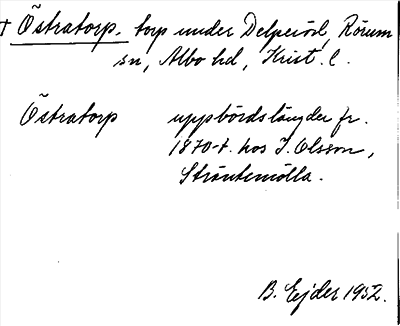 † Östratorp. torp under Delperöd, Rörum
sn, Albo hd, Krist. l.
Östratorp uppbördslängder fr.
1870-t. hos J. Olsson,
Sträntemölla.
B. Ejder 1952.